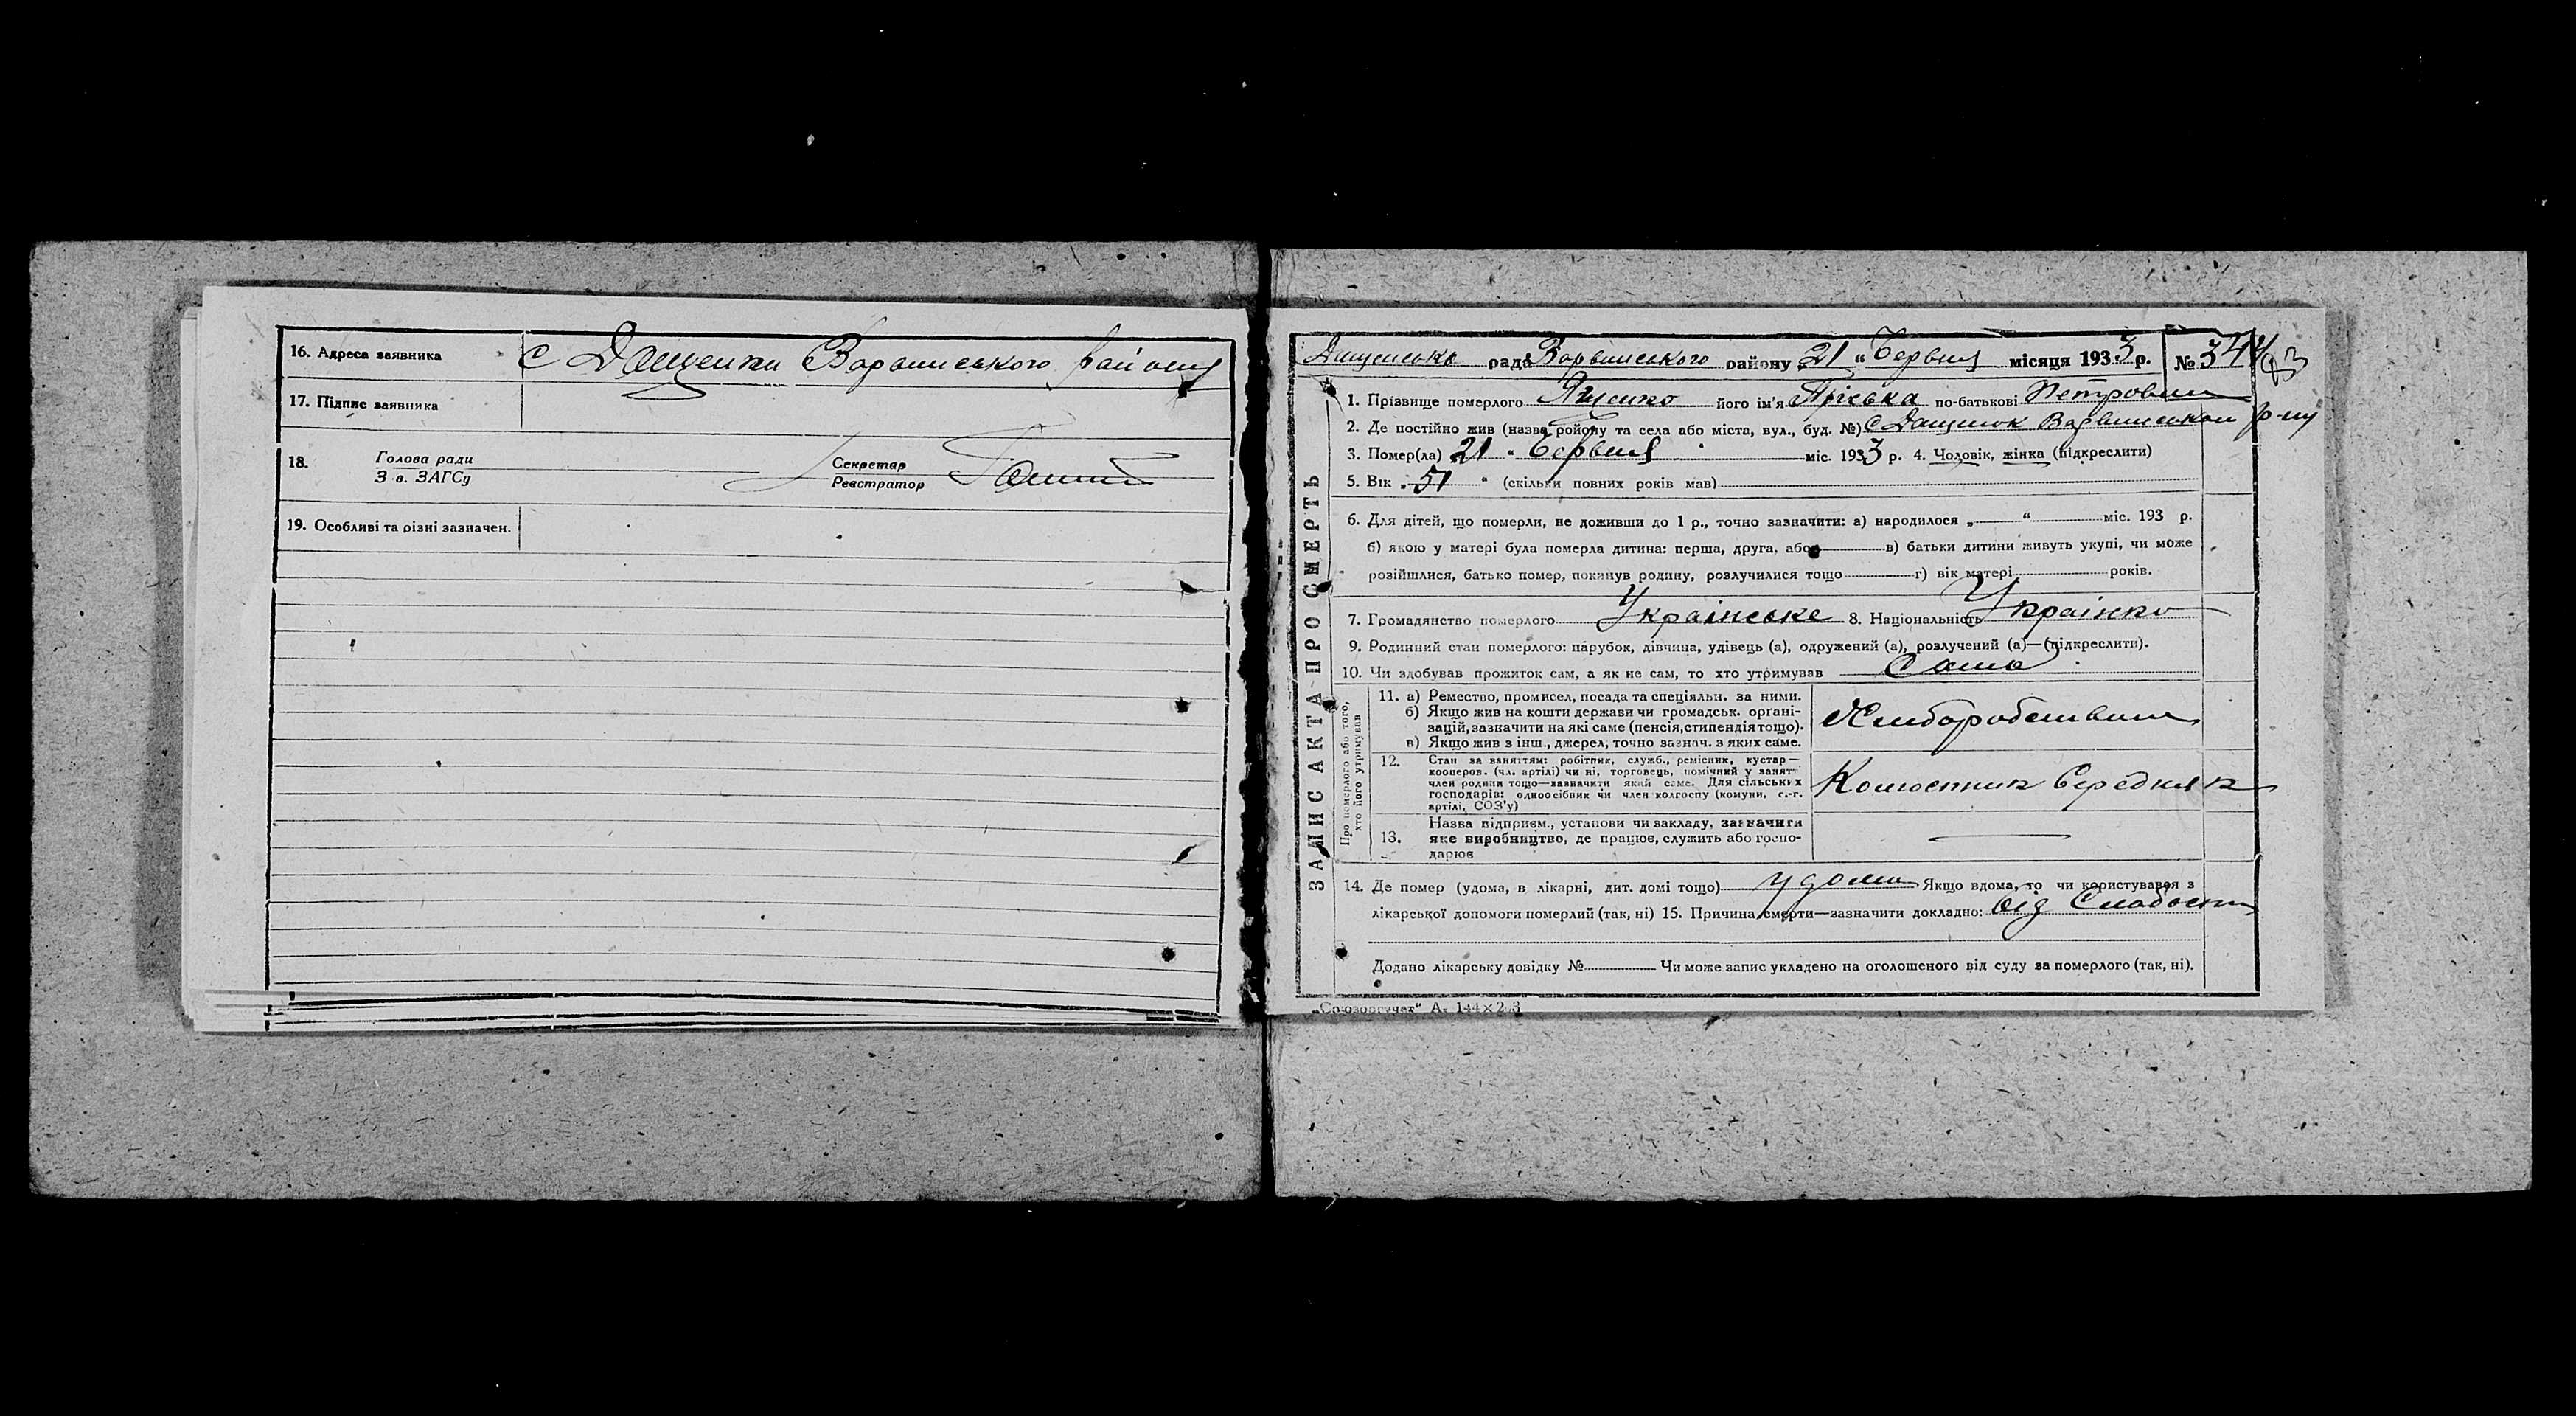 16. Адреса заявника с Дащенки Варвинського району
17. Підпис заявника
18. Голова ради
З в. ЗАГСу
Секретар
Реєстратор
19. Особливі та різні зазначен.
ЗАПИС АКТА ПРО СМЕРТЬ
Дащенська рада Варвинського району 21 „ Червня місяця 1933 р. № 344
1. Прізвище померлого Яценко його ім'я Пріська по-батькові Петровна
2. Де постійно жив (назва району та села або міста, вул., буд. №) с Дащенок Варвинського р-ну
3. Помер(ла) 21 „ Червня міс. 1933 р. 4. Чоловік, жінка (підкреслити)
5. Вік „ 51 “ (скільки повних років мав)
6. Для дітей, що померли, не доживши до 1 р., точно зазначити: а) народилося „ “ міс. 193 р.
б) якою у матері була померла дитина: перша, друга, або в) батьки дитини живуть укупі, чи може
розійшлися, батько помер, покинув родину, розлучилися тощо г) вік матері років.
7. Громадянство померлого Українське 8. Національність Українка
9. Родинний стан померлого: парубок, дівчина, удівець (а), одружений (а), розлучений (а)—(підкреслити).
10. Чи здобував прожиток сам, а як не сам, то хто утримував Сама
Про померлого або того,
хто його утримував
11. а) Ремество, промисел, посада та спеціяльн. за ними.
б) Якщо жив на кошти держави чи громадськ. органі-
зацій, зазначити на які саме (пенсія, стипендія тощо).
в) Якщо жив з інш., джерел, точно зазнач. з яких саме.
Хлиборобством
12. Стан за заняттям: робітник, служб., ремісник, кустар—
кооперов. (чл. артілі) чи ні, торговець, помічний у занят-
член родини тощо—зазначити який саме. Для сільських
господарів: одноосібник чи член колгоспу (комуни, с.-г.
артілі, СОЗ'у)
Середняк
13. Назва підприєм., установи чи закладу, зазначити
яке виробництво, де працює, служить або госпо-
дарює
14. Де помер (удома, в лікарні, дит. домі тощо) удома Якщо вдома, то чи користувався з
лікарської допомоги померлий (так, ні) 15. Причина смерти—зазначити докладно: від Слабости
Додано лікарську довідку № Чи може запис укладено на оголошеного від суду за померлого (так, ні).